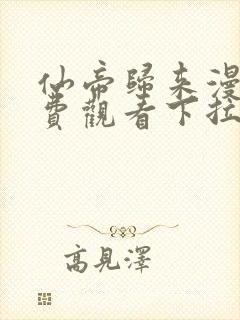 仙帝歸來漫
費觀看下拉
高見澤